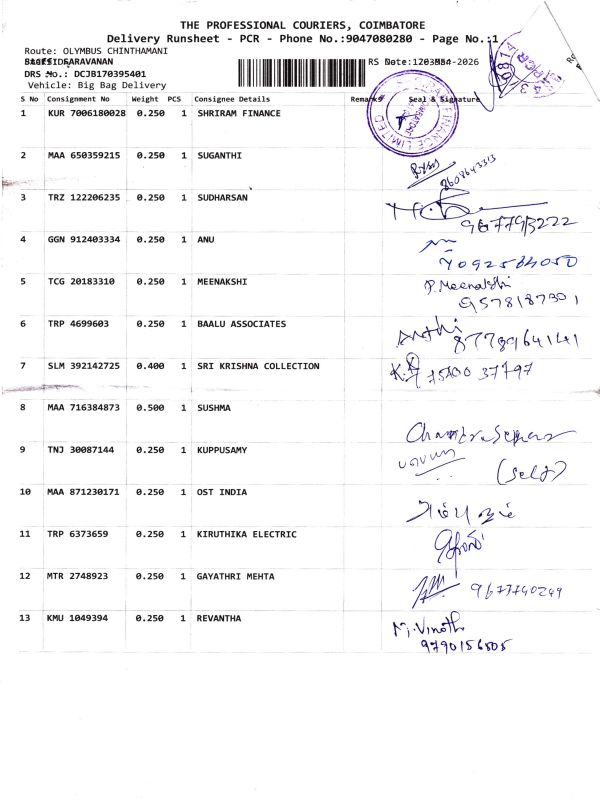 THE PROFESSIONAL COURIERS, COIMBATORE
Delivery Runsheet - PCR - Phone No.:9047080280 - Page No.:1
Route: OLYMBUS CHINTHAMANI
SARAVANAN RS Date:12
DRS No.: DCJB170395401
Vehicle: Big Bag Delivery
S No Consignment No Weight PCS Consignee Details Remarks Seal & Signature
1 KUR 7006180028 0.250 1 SHRIRAM FINANCE
FINANCE LIMITED
2 MAA 650359215 0.250 1 SUGANTHI
8608643313
3 TRZ 122206235 0.250 1 SUDHARSAN
9677793222
4 GGN 912403334 0.250 1 ANU
7092584050
5 TCG 20183310 0.250 1 MEENAKSHI P.Meenakshi
9578187301
6 TRP 4699603 0.250 1 BAALU ASSOCIATES
8778964141
7 SLM 392142725 0.400 1 SRI KRISHNA COLLECTION
75500 37797
8 MAA 716384873 0.500 1 SUSHMA
9 TNJ 30087144 0.250 1 KUPPUSAMY
(Self)
10 MAA 871230171 0.250 1 OST INDIA
11 TRP 6373659 0.250 1 KIRUTHIKA ELECTRIC
12 MTR 2748923 0.250 1 GAYATHRI MEHTA 9677740249
13 KMU 1049394 0.250 1 REVANTHA
9790156505